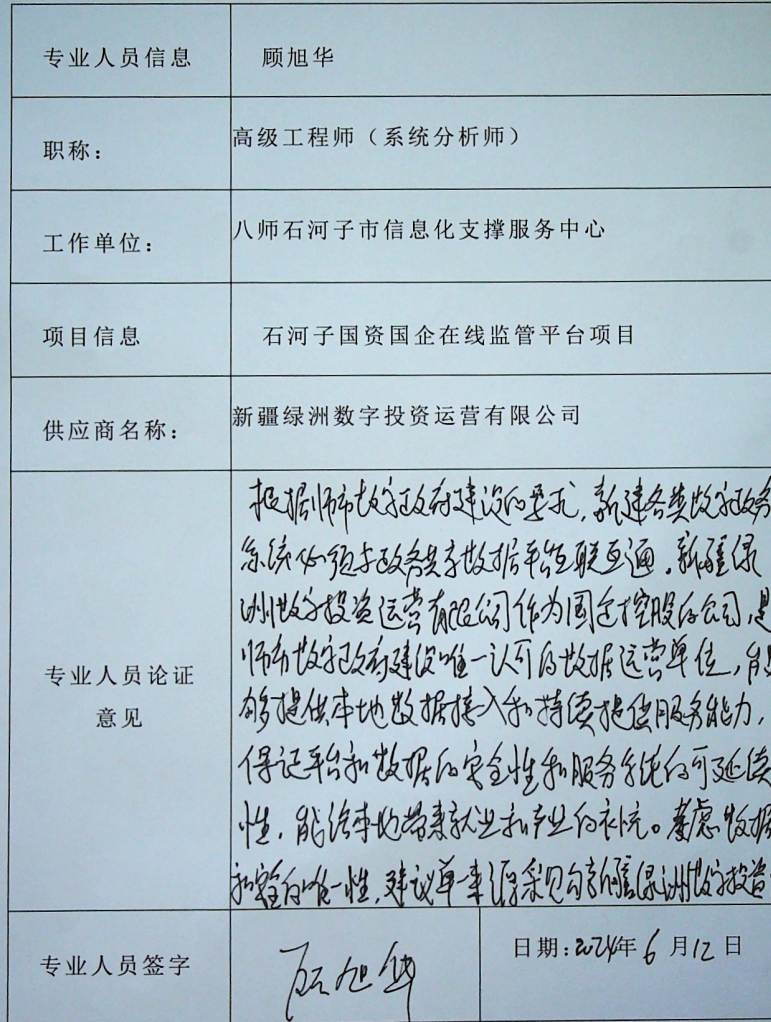 专业人员信息 顾旭华
职称： 高级工程师（系统分析师）
工作单位： 八师石河子市信息化支撑服务中心
项目信息 石河子国资国企在线监管平台项目
供应商名称： 新疆绿洲数字投资运营有限公司
专业人员论证
意见
根据师市数字政府建设的要求，新建各类数字政务
系统必须与政务共享数据平台互联互通。新疆绿
洲数字投资运营有限公司作为国企控股的公司，是
师市数字政府建设唯一认可的数据运营单位，能
够提供本地数据接入和持续提供服务能力，
保证平台和数据的安全性和服务系统的可延续
性，能给本地带来就业和产业的补充。考虑数据
和安全的唯一性，建议单一来源采购新疆绿洲数字投资
专业人员签字 顾旭华 日期：2024年6月12日